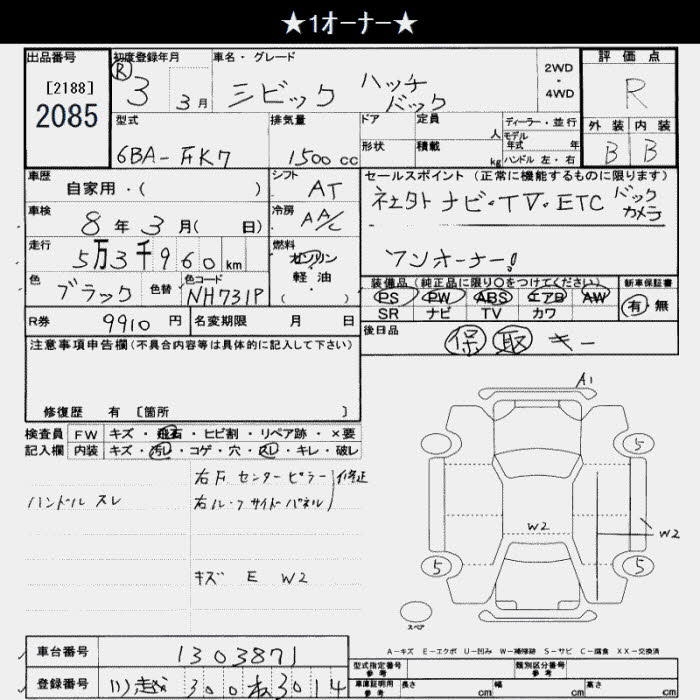 ★1オーナー★
出品番号
[2188]
2085
初度登録年月
R 3 3月
車名・グレード
シビック ハッチバック
2WD
・
4WD
評価点
R
外装 内装
B B
型式
6BA-FK7
排気量
1500 cc
ドア
形状
定員 人
積載 kg
ディーラー・並行
モデル年式 年
ハンドル 左・右
車歴
自家用・( )
シフト
AT
車検
8年 3月( 日)
冷房
AA/C
走行
5万3千960km
燃料
ガソリン
軽・油
( )
色
ブラック
色替
色コード
NH731P
R券
9910 円
名変期限 月 日
セールスポイント(正常に機能するものに限ります)
社外ナビ・TV・ETC バックカメラ
ワンオーナー!
装備品(純正品に限り○をつけてください)
PS PW ABS エアB AW
SR ナビ TV カワ
新車保証書
有・無
後日品
保 取 キー
注意事項申告欄(不具合内容等は具体的に記入して下さい)
修復歴 有 [箇所 ]
検査員 FW キズ・飛石・ヒビ割・リペア跡・×要
記入欄 内装 キズ・汚レ・コゲ・穴・スレ・キレ・破レ
ハンドル スレ
右F センターピラー
右ルーフサイドパネル
修正
キズ E W2
A1
5
5
5
W2
W2
スペア
A-キズ E-エクボ U-凹み W-補修跡 S-サビ C-腐食 XX-交換済
車台番号
1303871
登録番号
300 3014
型式指定番号
参考
類別区分番号
参考
車庫証明用
参考
長さ cm
幅 cm
高さ cm